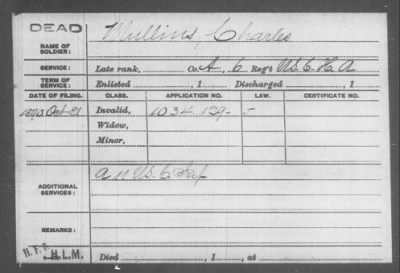 DEAD
Mullins, Charles
NAME OF SOLDIER:
SERVICE: Late rank, Co. A, 6 Reg't U.S.C.H.A
TERM OF SERVICE: Enlisted , 1 Discharged , 1
DATE OF FILING. CLASS. APPLICATION NO. LAW. CERTIFICATE NO.
Oct 21 Invalid, 1034.129
Widow,
Minor,
ADDITIONAL SERVICES: U.S.C. Inf
REMARKS:
H.F.
H.L.M. Died , 1 , at